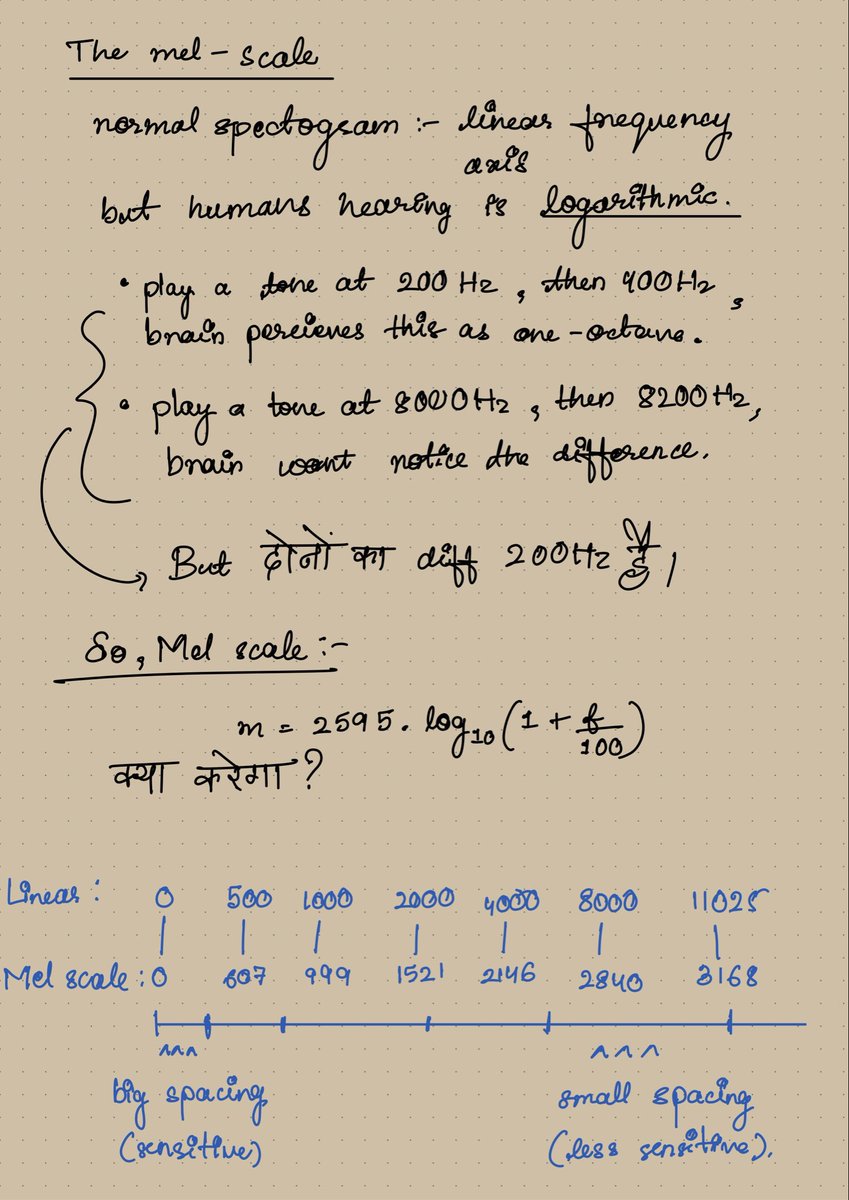 The mel-scale
normal spectogram :- linear frequency
axis
but humans hearing is logarithmic.
• play a tone at 200 Hz, then 400Hz,
brain percieves this as one-octave.
• play a tone at 8000Hz, then 8200Hz,
brain wont notice the difference.
But दोनों का diff 200Hz है।
So, Mel scale :-
m = 2595 . log10 (1 + f/100)
क्या करेगा ?
Linear : 0 500 1000 2000 4000 8000 11025
Mel scale : 0 607 999 1521 2146 2840 3168
big spacing small spacing
(sensitive) (less sensitive).